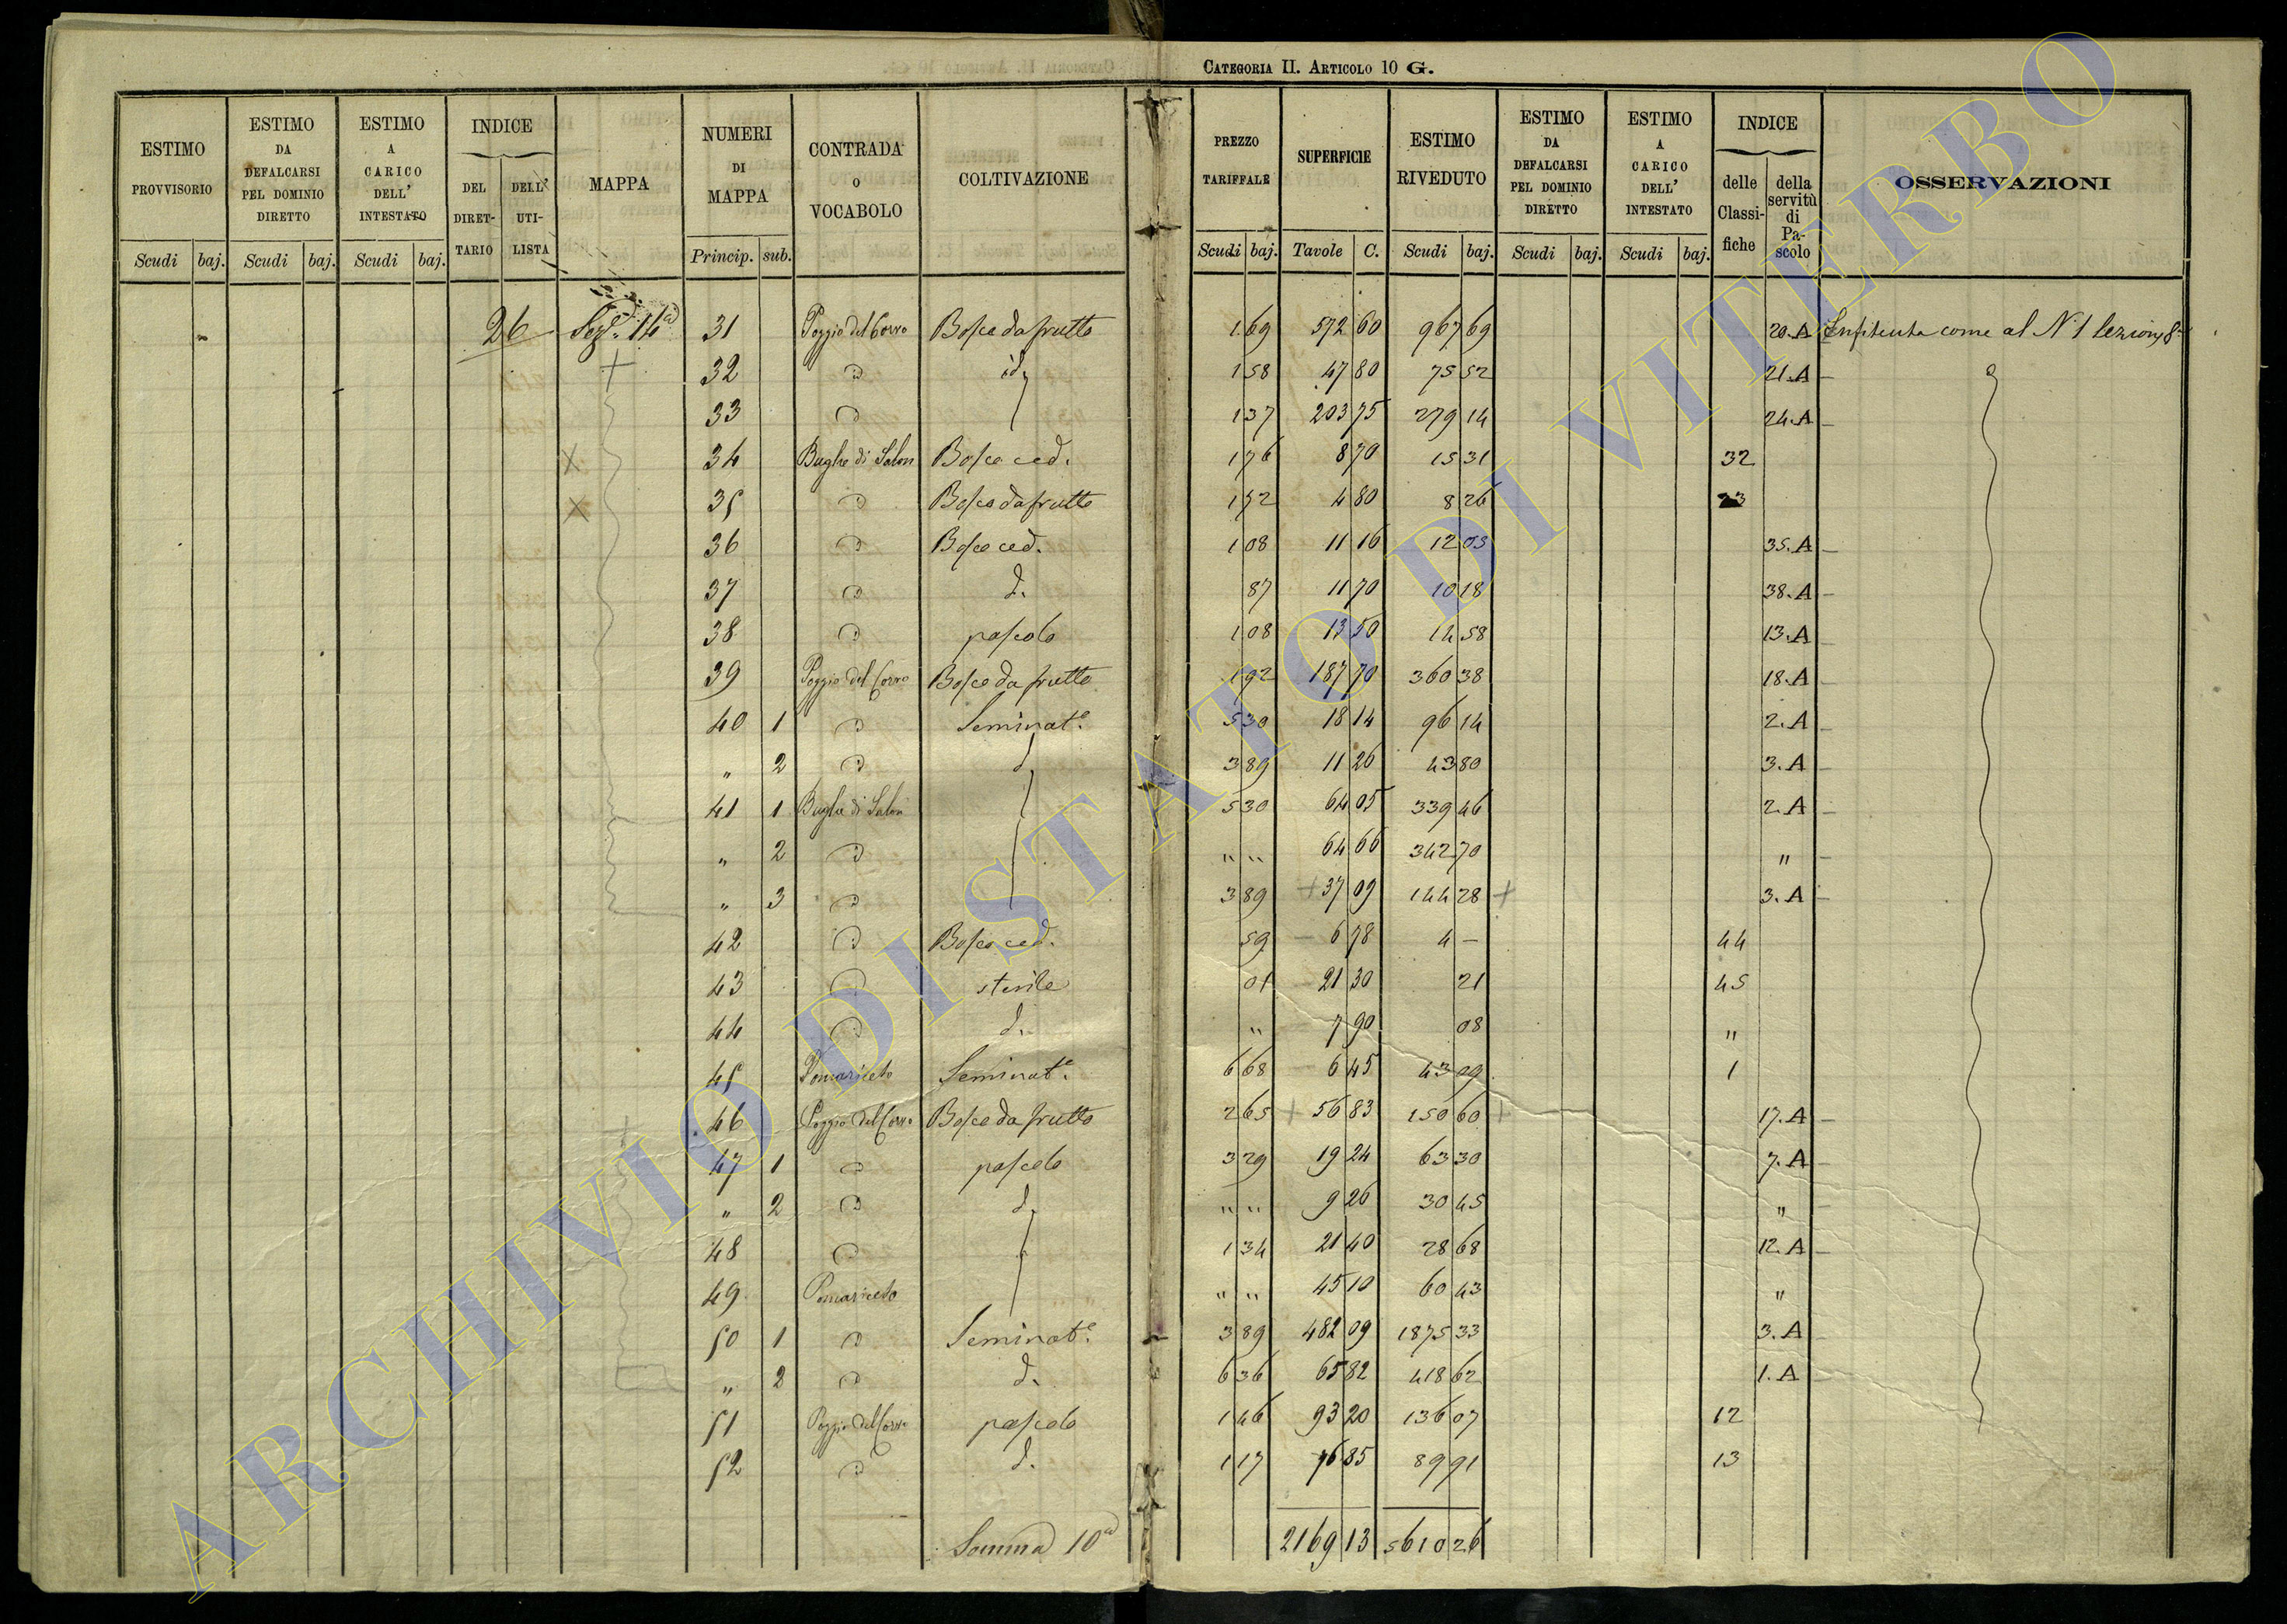 CATEGORIA II. ARTICOLO 10 G.
ESTIMO PROVVISORIO Scudi baj.
ESTIMO DA DEFALCARSI PEL DOMINIO DIRETTO Scudi baj.
ESTIMO A CARICO DELL' INTESTATO Scudi baj.
INDICE DEL DIRETTARIO DELL' UTILISTA
MAPPA
NUMERI DI MAPPA Princip. sub.
CONTRADA O VOCABOLO
COLTIVAZIONE
PREZZO TARIFFALE Scudi baj.
SUPERFICIE Tavole C.
ESTIMO RIVEDUTO Scudi baj.
ESTIMO DA DEFALCARSI PEL DOMINIO DIRETTO Scudi baj.
ESTIMO A CARICO DELL' INTESTATO Scudi baj.
INDICE delle Classifiche della servitù di Pascolo
OSSERVAZIONI
26 Sez.e 14a 31 Poggio del Corvo Bosco da frutto 1 69 572 60 967 69 20.A Enfiteuta come al N. 1 Sezion 8a
32 " id. 1 58 47 80 75 52 21.A
33 " 1 37 203 75 279 14 24.A
34 Bughe di Salon Bosco ced. 1 76 8 70 15 31 32
35 " Bosco da frutto 1 72 4 80 8 26
36 " Bosco ced. 1 08 11 16 12 05 35.A
37 " d. 87 11 70 10 18 38.A
38 " pascolo 1 08 13 50 14 58 13.A
39 Poggio del Corvo Bosco da frutto 1 92 187 70 360 38 18.A
40 1 " Seminat.e 5 30 18 14 96 14 2.A
" 2 " d. 3 89 11 26 43 80 3.A
41 1 Bughe di Salon 5 30 64 05 339 46 2.A
" 2 " " " 64 66 342 70 "
" 3 " 3 89 37 09 144 28 3.A
42 " Bosco ced. 59 6 78 4 — 44
43 " sterile 01 21 30 21 45
44 " d. " 7 90 08 "
45 Pomariceto Seminat.e 6 68 6 45 43 09 1
46 Poggio del Corvo Bosco da frutto 2 65 56 83 150 60 17.A
47 1 " pascolo 3 29 19 24 63 30 7.A
" 2 " d. " " 9 26 30 45 "
48 " 1 34 21 40 28 68 12.A
49 Pomariceto " " 45 10 60 43 "
50 1 " Seminat.e 3 89 482 09 1875 33 3.A
" 2 " d. 6 36 65 82 418 62 1.A
51 Poggio del Corvo pascolo 1 46 93 20 136 07 12
52 " d. 1 17 76 85 89 91 13
Somma 10a 2169 13 5610 26
ARCHIVIO DI STATO DI VITERBO